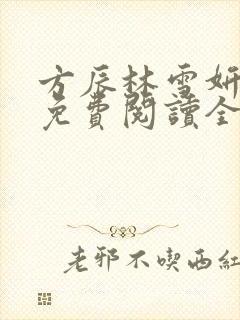 方辰林雪妍
免費閱讀全
老邪不喫西紅